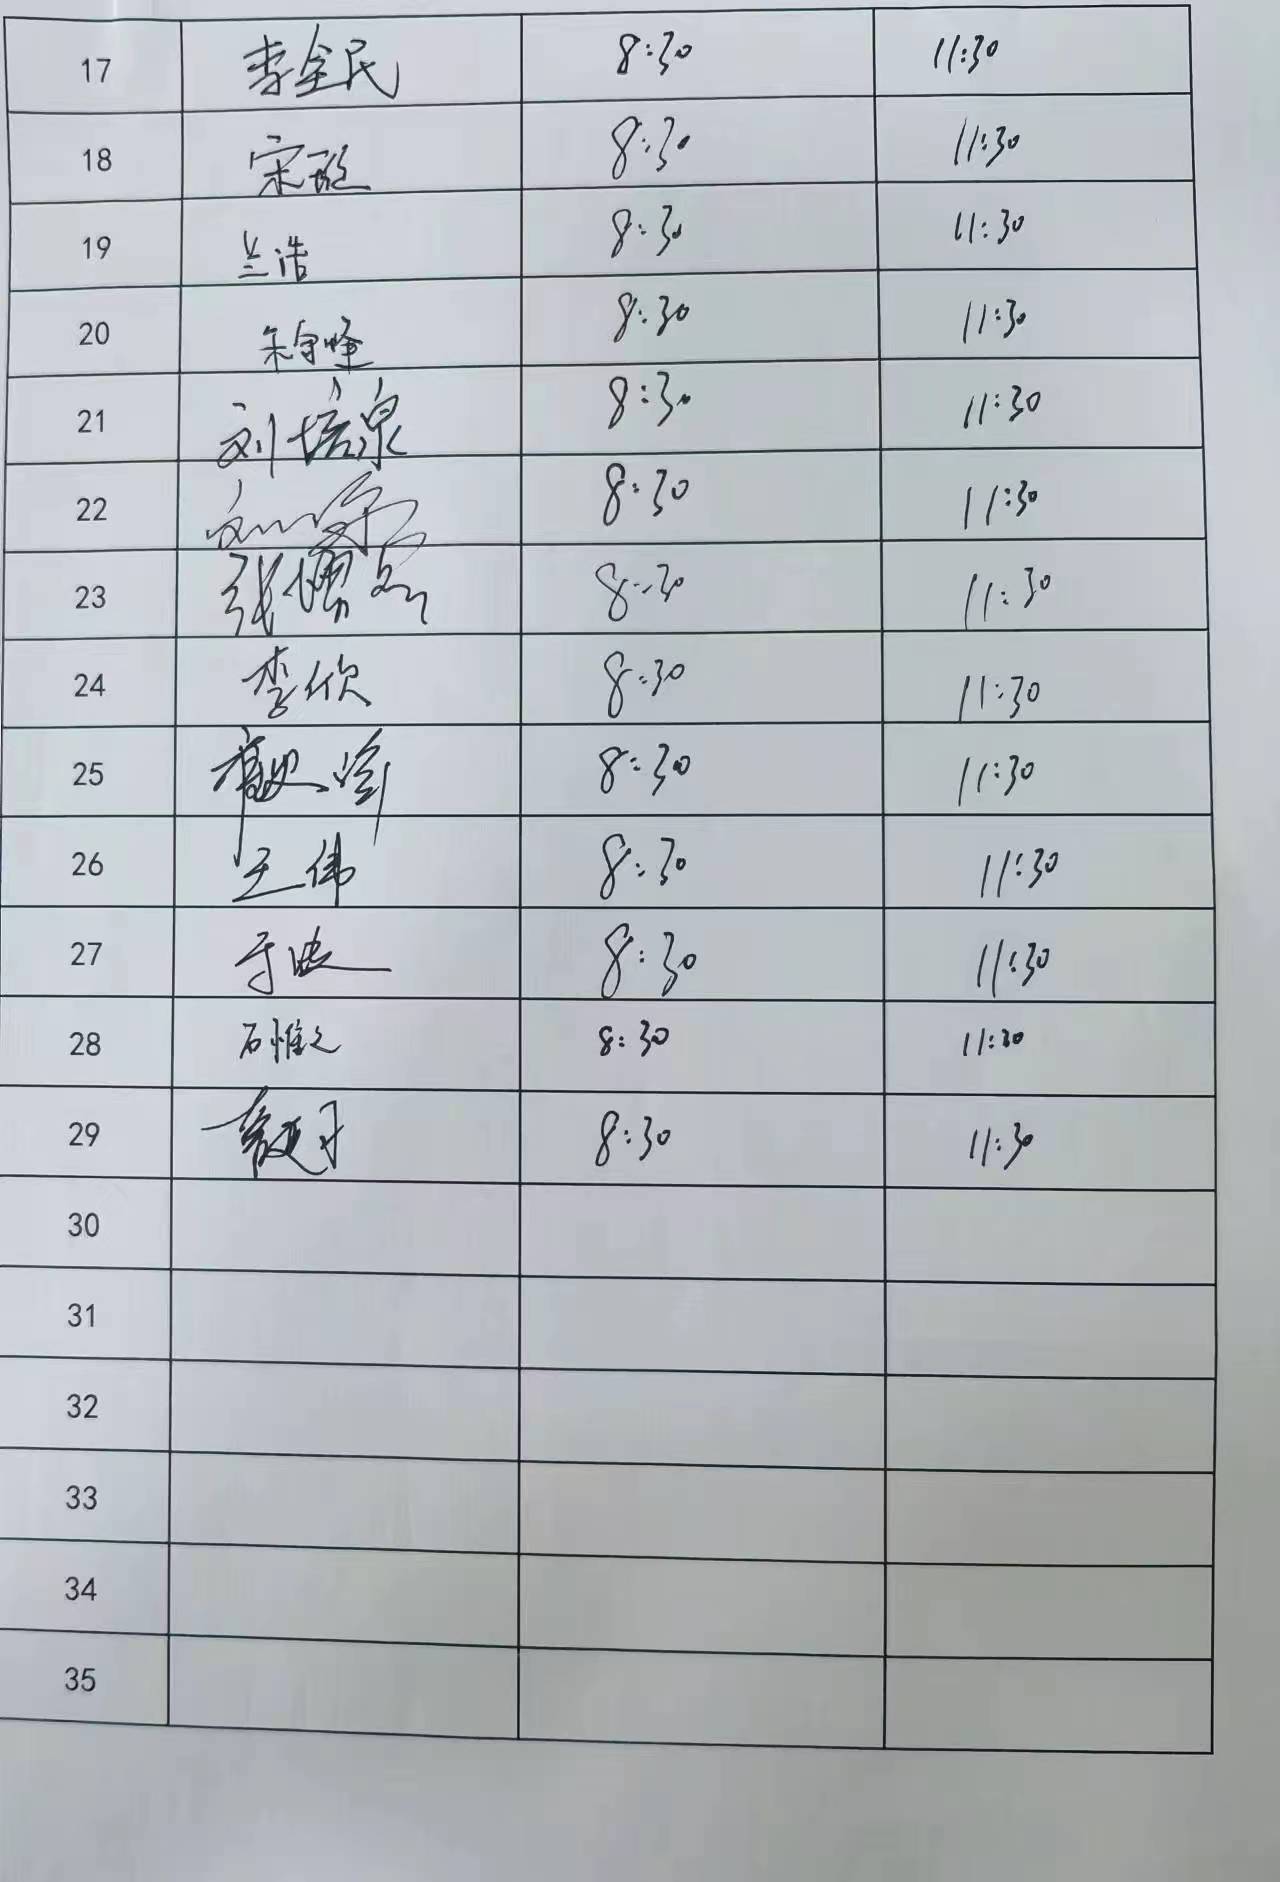 17 李全民 8:30 11:30
18 宋 8:30 11:30
19 兰浩 8:30 11:30
20 朱守峰 8:30 11:30
21 刘培泉 8:30 11:30
22 刘 8:30 11:30
23 张 8:30 11:30
24 李欣 8:30 11:30
25 8:30 11:30
26 王伟 8:30 11:30
27 于 8:30 11:30
28 石惟之 8:30 11:30
29 8:30 11:30
30
31
32
33
34
35